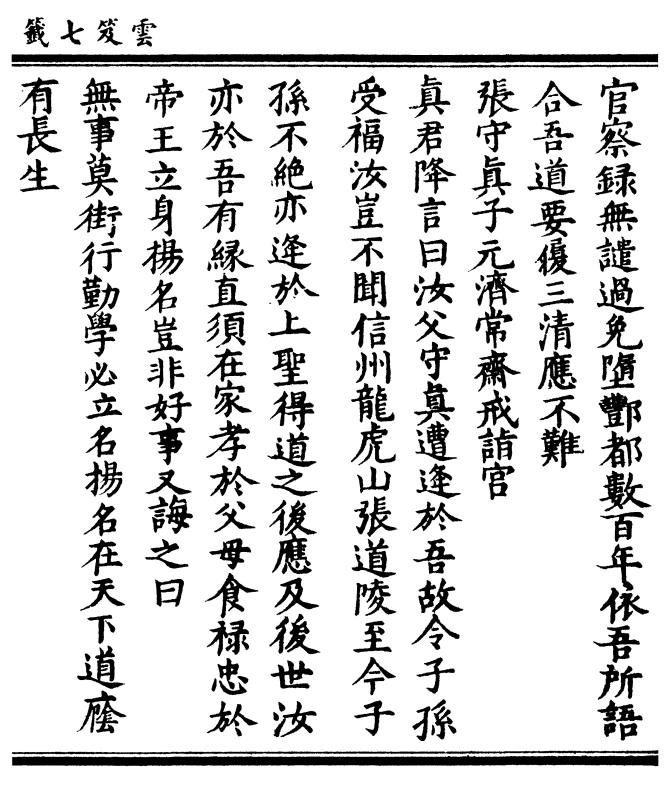 雲笈七籤
官察録無譴過免墮酆都數百年依吾所語
合吾道要復三清應不難
張守眞子元濟常齋戒詣宫
眞君降言曰汝父守眞遭逢於吾故令子孫
受福汝豈不聞信州龍虎山張道陵至今子
孫不絶亦逢於上聖得道之後應及後世汝
亦於吾有縁直須在家孝於父母食禄忠於
帝王立身揚名豈非好事又誨之曰
無事莫街行勤學必立名揚名在天下道廕
有長生